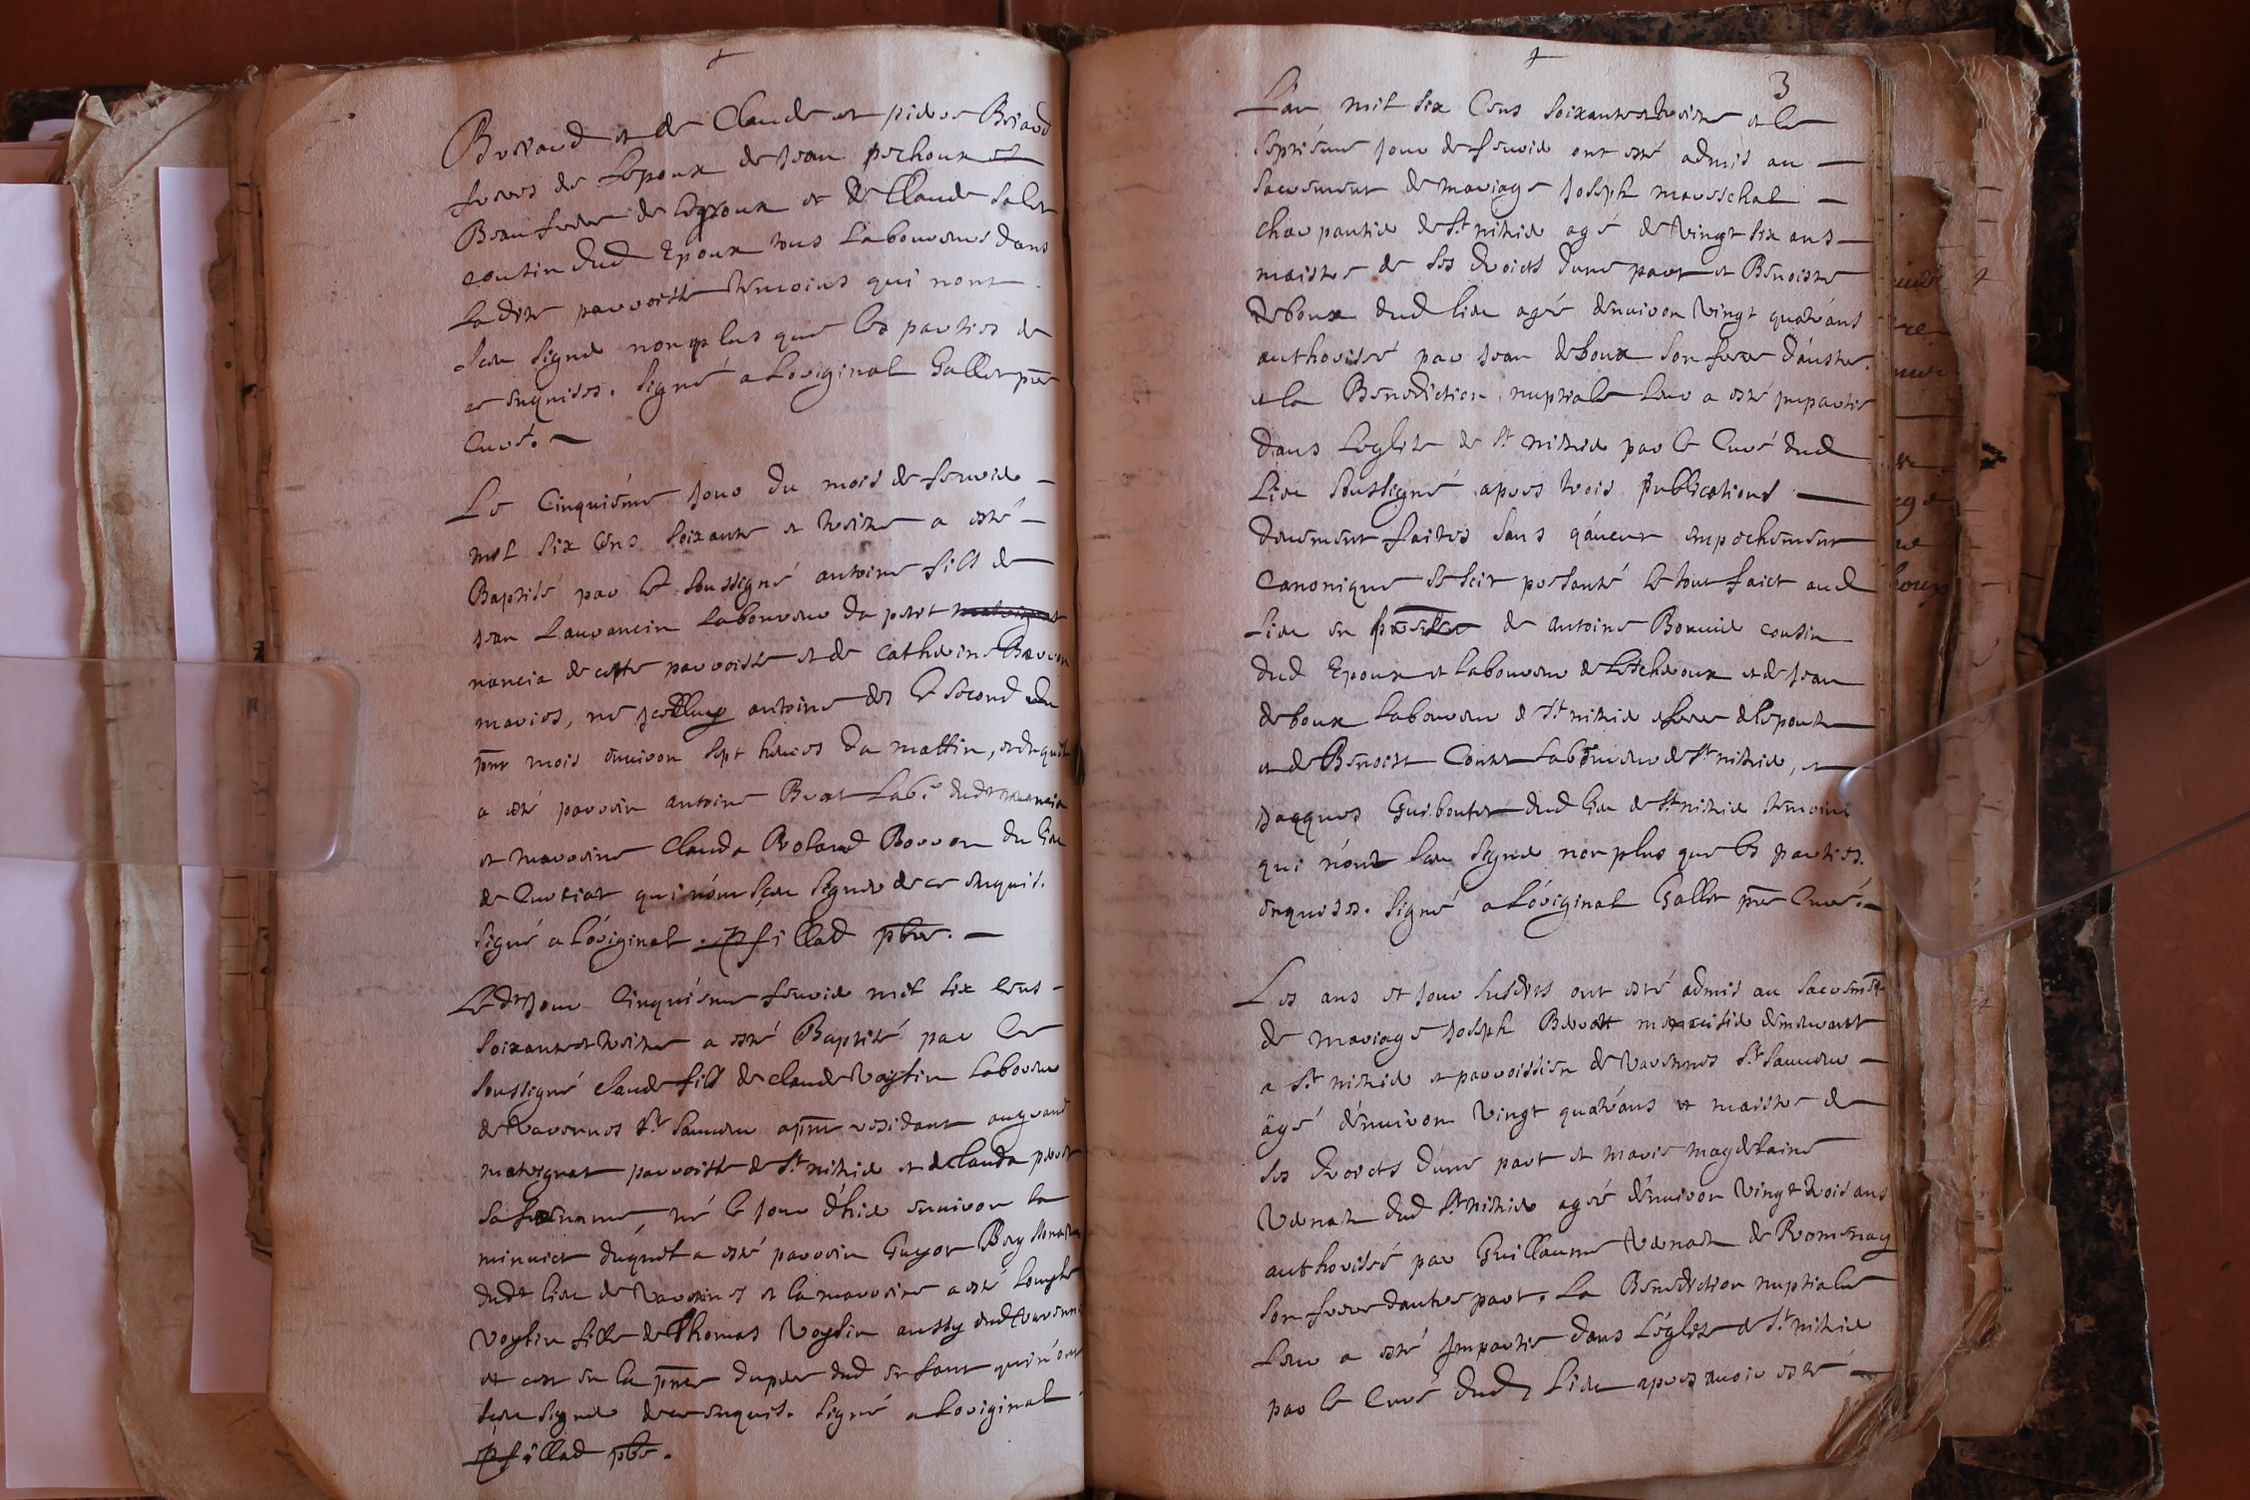 Berraud et de Claude et pierre Briard
freres de Lepoux de Jean pochoux et
Beau frere de Lepoux et de Claude
cousin dud Epoux tous Laboureurs dans
Ladite parroisse temoins qui nont
sceu signer non plus que les parties de
ce enquises. Signé a Loriginal Gallet pre
Curé.
Le Cinquiéme jour du mois de fevrier
mil six cens soixante et treize a esté
Baptisé par le soussigné antoine fils de
jean Lauvancin laboureur du petit
de cette parroisse et de catherine
mariés, né antoine des le second du
pnt mois environ sept heures du mattin, duquel
a esté parrein antoine Labr. dudt
et marreine Clauda Roland du lieu
de Curciat qui nont sceu signer de ce enquis.
Signé a Loriginal. fillad pbre.
Ledt jour Cinquiéme fevrier mil six cens
soixante et treize a esté Baptisé par le
soussigné claude fils de claude Voysin laboureur
de Varennes St. Sauveur apnt residant au grand
matignat parroisse de St. nisier et de clauda
sa femme, né le jour d'hier environ la
minuict duquel a esté parrein Guyot
dudt lieu de Varennes et la marreine a esté
Voysin fille de Thomas Voysin aussy dud Varennes
et ce en la pnce du pere dud enfant qui n'ont
sceu signer de ce enquis. Signé a Loriginal
fillad pbre.
3
L'an mil six Cens soixante et treize et le
septiéme jour de fevrier ont esté admis au
sacrement de mariage joseph mareschal
charpantier de St. nisier agé de vingt six ans
maistre de ses droicts dune part et Benoiste
deboux dud lieu agée d'environ vingt quatre ans
authorisée par jean deboux son frere d'austre.
et la Benediction nuptiale leur a esté jmpartie
dans Leglise de St nisier par le Curé dud
Lieu soussigné apres trois publications
deuement faites sans q'aucun empechement
canonique se soit presenté le tout faict aud
Lieu en presence de antoine cousin
dud Epoux et laboureur de et de jean
deboux laboureur d St nisier et frere de lepouse
et de Benoist laboureur de St nisier, et
jacques dud lieu de St. nisier temoins
qui n'ont sceu signer non plus que les parties
enquises. Signé a Loriginal Gallet pre Curé.
Les ans et jour susdits ont esté admis au sacrement
de mariage joseph demeurant
a St. nisier et parroissien de Varennes St. Sauveur
agé d'environ vingt quatre ans et maistre de
ses droicts d'une part et marie magdelaine
dud St. nisier agée d'environ vingt trois ans
authorisée par Guillaume de Romenay
son frere dautre part. La Benediction nuptiale
leur a esté jmpartie dans L'eglise d St. nisier
par le Curé dud Lieu apres avoir esté